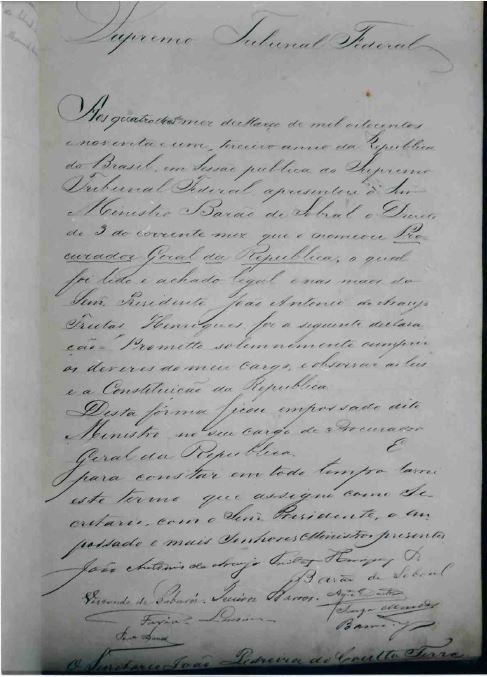 Supremo Tribunal Federal
Aos quatro do mez de Março de mil oitocentos
e noventa e um, terceiro anno da Republica
do Brasil, em sessão publica do Supremo
Tribunal Federal apresentou o Snr
Ministro Barão de Sobral o Decreto
de 3 do corrente mez que o nomeou Pro
curador Geral da Republica, o qual
foi lido e achado legal e nas mãos do
Senr. Presidente João Antonio de Araujo
Freitas Henriques fez a seguinte declara
ção - Prometto solemnemente cumprir
os deveres do meu cargo, e observar as leis
e a Constituição da Republica.
Desta fórma ficou empossado dito
Ministro no seu cargo de Procurador
Geral da Republica. E
para constar em todo tempo lavrei
este termo que assigno como Se
cretario, com o Senr. Presidente, o em
possado e mais Senhores Ministros presentes
João Antonio de Araujo Freitas Henriques P.
Barão de Sobral
Visconde de Sabará. Queiroz Barros.
O Secretario João Pedreira do Couto Ferraz